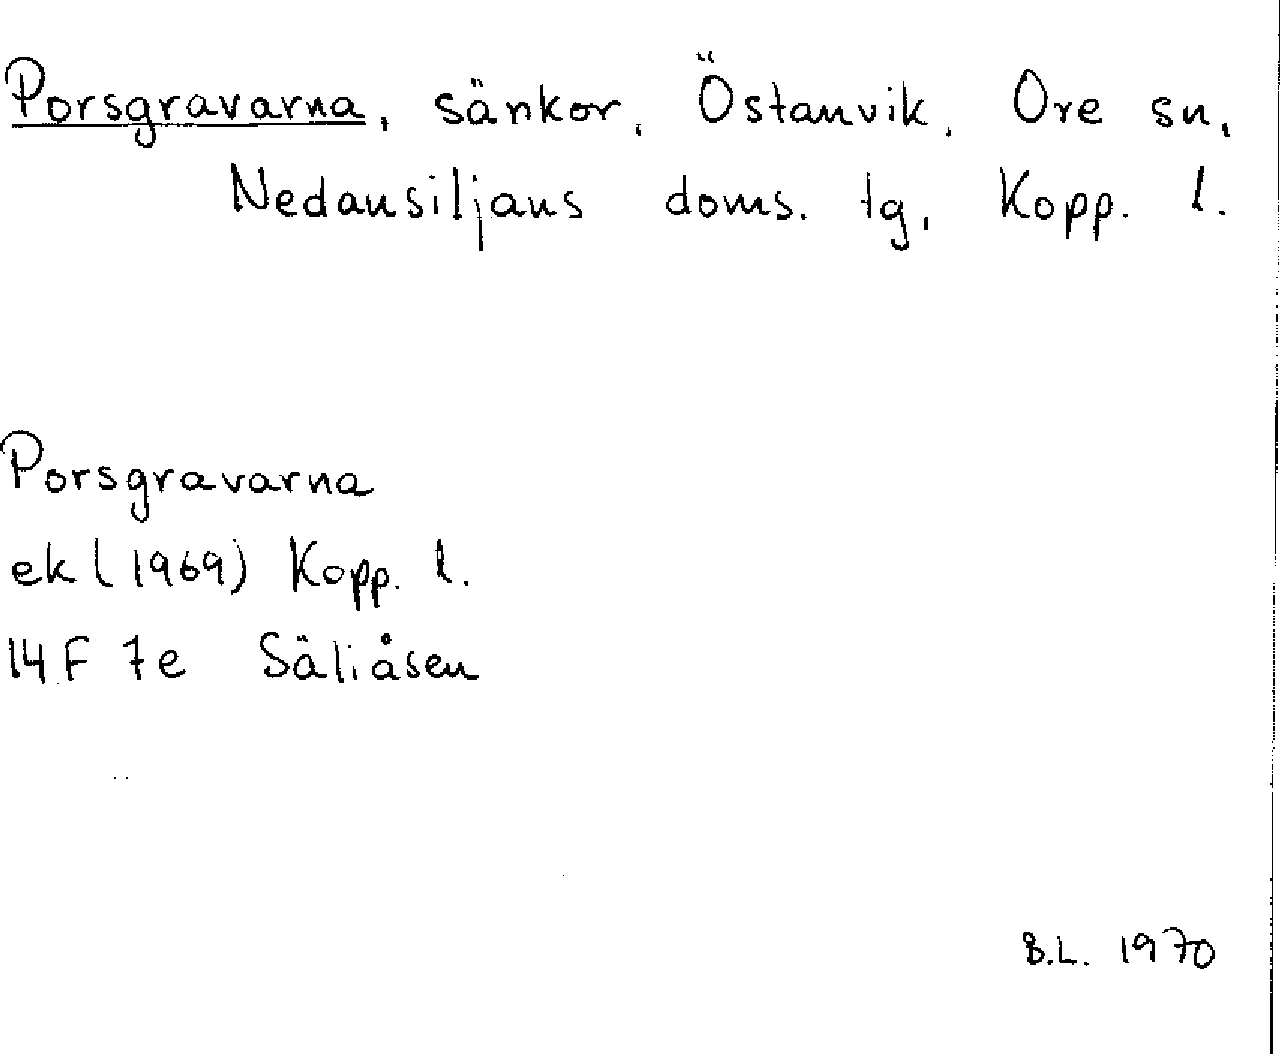 Porsgravarna, sänkor, Östanvik, Ore sn,
Nedansiljans doms. tg, Kopp. l.
Porsgravarna
ek (1969) Kopp. l.
14F 7e Säliåsen
B.L. 1970